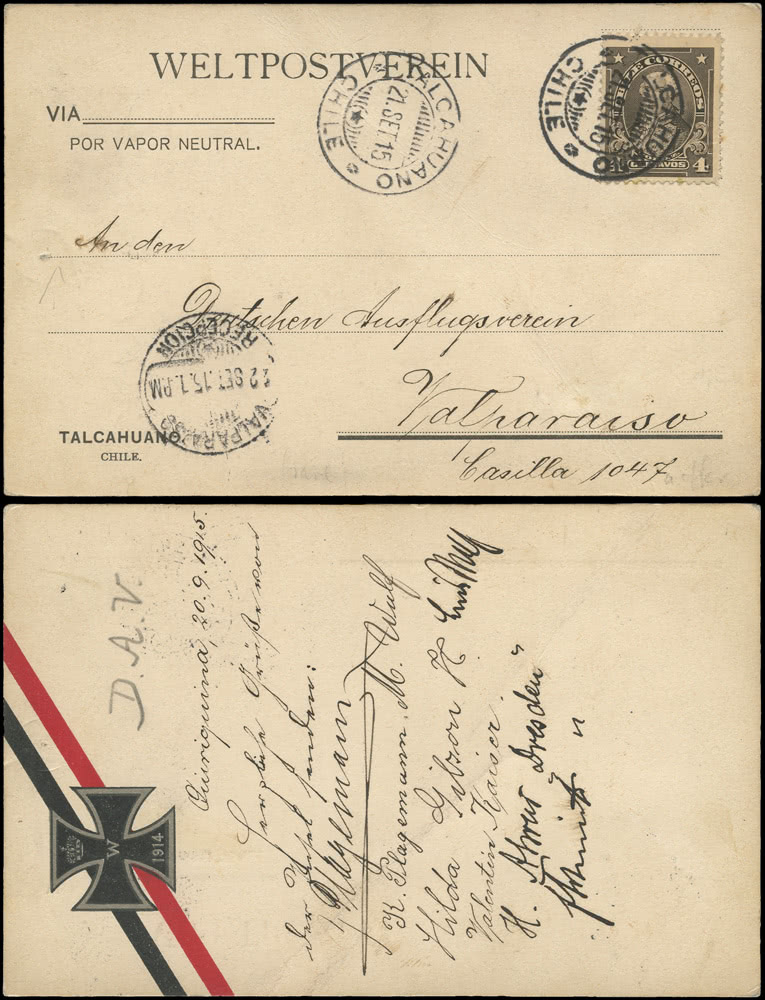 WELTPOSTVEREIN
VIA
POR VAPOR NEUTRAL.
TALCAHUANO
21.SET.15
CHILE
CHILE CORREOS
4
CENTAVOS
CHILE
An den
Deutschen Ausflugsverein
Valparaiso
Casilla 1047
RECEPCION
22 SET.15.1.PM
VALPARAISO
TALCAHUANO
CHILE.
D.A.V.
Quiriquina, 20.9.1915.
Herzliche Grüße von
der Insel senden:
Plagemann
K. Plagemann. M. Wulf
Hilda Gibson H.
Valentin Kaiser.
H. Dresden"
W
1914